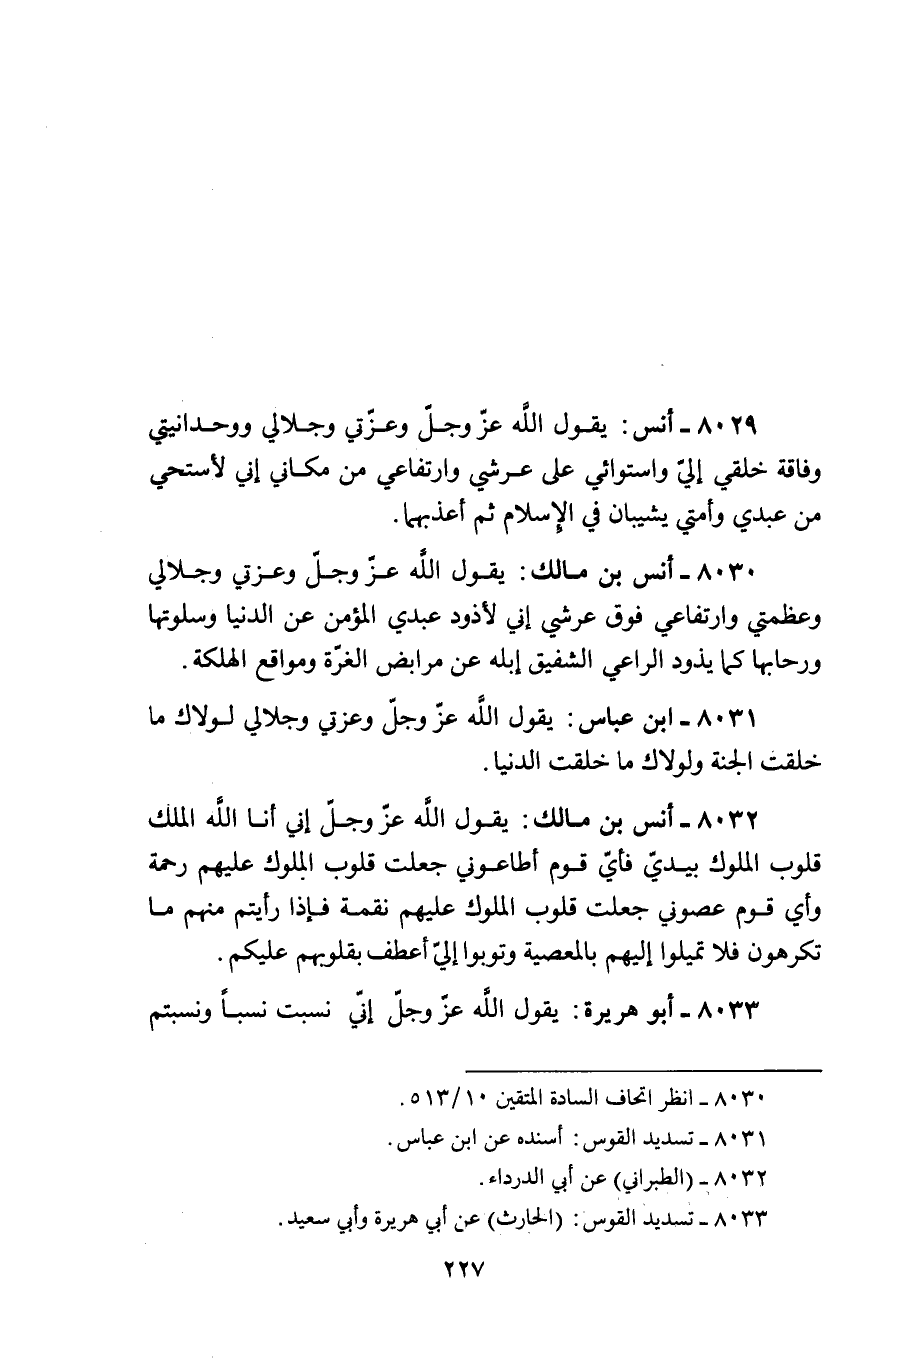 ٨٠٢٩ ـ أنس : يقـول اللَّه عزّ وجـلّ وعـزّتي وجـلالي ووحـدانيتي
وفاقة خلقي إليّ واستوائي على عـرشي وارتفاعي من مكـاني إني لأستحي
من عبدي وأمتي يشيبان في الإسلام ثم أعذبهما.
٨٠٣٠ ـ أنس بن مـالك : يقـول اللَّه عـزّ وجـلّ وعـزتي وجـلالي
وعظمتي وارتفاعي فوق عرشي إني لأذود عبدي المؤمن عن الدنيا وسلوتها
ورحابها كما يذود الراعي الشفيق إبله عن مرابض الغرّة ومواقع الهلكة .
٨٠٣١ ـ ابن عباس : يقول اللَّه عزّ وجلّ وعزتي وجلالي لـولاك ما
خلقت الجنة ولولاك ما خلقت الدنيا .
٨٠٣٢ ـ أنس بن مـالك : يقـول اللَّه عزّ وجـلّ إني أنـا اللَّه الملك
قلوب الملوك بيـديّ فأيّ قـوم أطاعـوني جعلت قلوب الملوك عليهم رحمة
وأي قـوم عصوني جعلت قلوب الملوك عليهم نقمـة فـإذا رأيتم منهم مـا
تكرهون فلا تميلوا إليهم بالمعصية وتوبوا إليّ أعطف بقلوبهم عليكم .
٨٠٣٣ ـ أبو هريرة : يقول اللَّه عزّ وجلّ إنّي نسبت نسبـاً ونسبتم
٨٠٣٠ ـ انظر اتحاف السادة المتقين ١٠/ ٥١٣ .
٨٠٣١ ـ تسديد القوس : أسنده عن ابن عباس .
٨٠٣٢ ـ (الطبراني) عن أبي الدرداء .
٨٠٣٣ ـ تسديد القوس : (الحارث) عن أبي هريرة وأبي سعيد .
٢٢٧